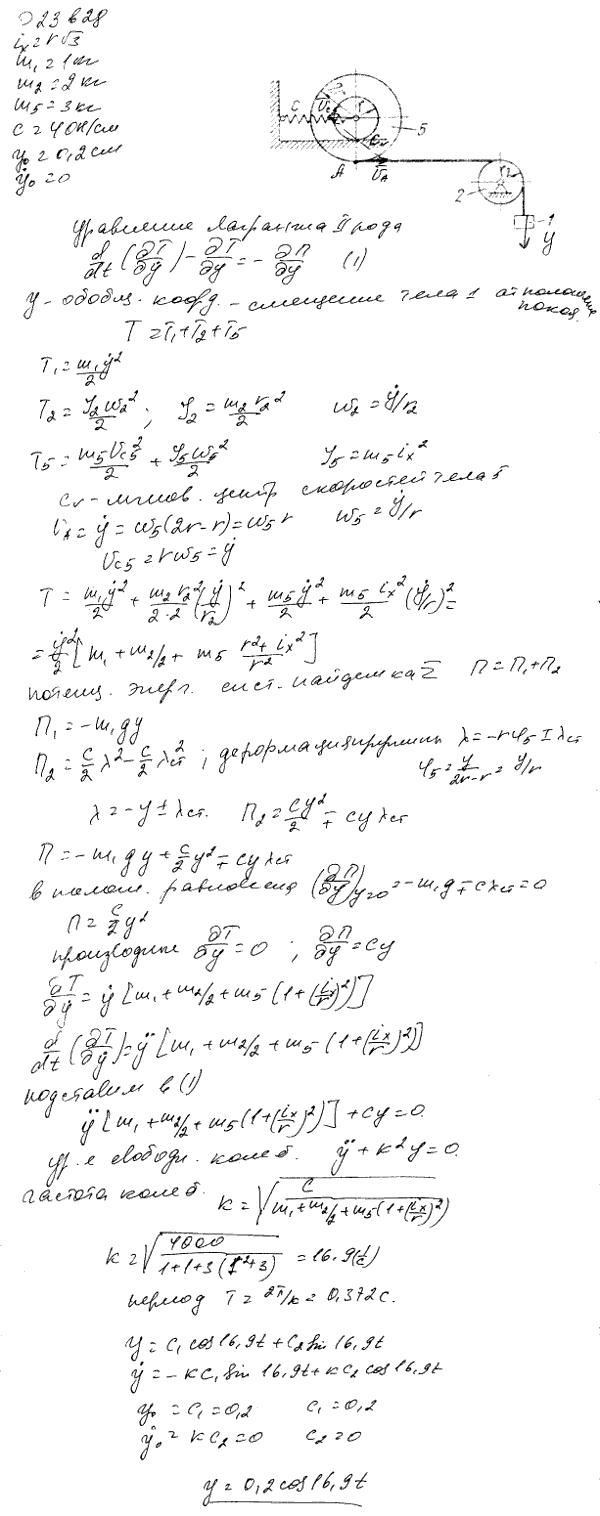 Д23 в28
iₓ = r√3
m₁ = 1 кг
m₂ = 2 кг
m₅ = 3 кг
c = 40 Н/см
y₀ = 0,2 см
ẏ₀ = 0
c
r
5
A
V̄_A
2
r₂
1
y
уравнение Лагранжа II рода
d/dt (∂T/∂ẏ) - ∂T/∂y = - ∂П/∂y (1)
y - обобщ. коорд. - смещение тела 1 от положения покоя.
T = T₁ + T₂ + T₅
T₁ = m₁ẏ²/2
T₂ = J₂ω₂²/2 ; J₂ = m₂r₂²/2 ω₂ = ẏ/r₂
T₅ = m₅V_c5²/2 + J₅ω₅²/2 J₅ = m₅iₓ²
C_v - мгнов. центр скоростей тела 5
V_A = ẏ = ω₅(2r-r) = ω₅r ω₅ = ẏ/r
V_c5 = rω₅ = ẏ
T = m₁ẏ²/2 + m₂r₂²/2·2 (ẏ/r₂)² + m₅ẏ²/2 + m₅iₓ²/2 (ẏ/r)² =
= ẏ²/2 [m₁ + m₂/2 + m₅ (r²+iₓ²)/r²]
потенц. энерг. сист. найдем как Σ П = П₁ + П₂
П₁ = -m₁gy
П₂ = c/2 λ² - c/2 λ²ст ; деформация пружины λ = -rφ₅ ± λст
φ₅ = y/(2r-r) = y/r
λ = -y ± λст. П₂ = cy²/2 ∓ cyλст
П = -m₁gy + c/2 y² ∓ cyλст
в полож. равновесия (∂П/∂y)y=0 = -m₁g ∓ cλст = 0
П = c/2 y²
производные ∂T/∂y = 0 ; ∂П/∂y = cy
∂T/∂ẏ = ẏ [m₁ + m₂/2 + m₅ (1+(iₓ/r)²)]
d/dt (∂T/∂ẏ) = ÿ [m₁ + m₂/2 + m₅ (1+(iₓ/r)²)]
подставим в (1)
ÿ [m₁ + m₂/2 + m₅ (1+(iₓ/r)²)] + cy = 0.
ур-е свободн. колеб. ÿ + k²y = 0.
частота колеб. k = √(c/(m₁ + m₂/2 + m₅ (1+(iₓ/r)²)))
k = √(4000/(1+1+3(1²+3))) = 16.9 (1/c)
период T = 2π/k = 0,372 c.
y = c₁ cos 16,9t + c₂ sin 16,9t
ẏ = -kc₁ sin 16,9t + kc₂ cos 16,9t
y₀ = c₁ = 0,2 c₁ = 0,2
ẏ₀ = kc₂ = 0 c₂ = 0
y = 0,2 cos 16,9t